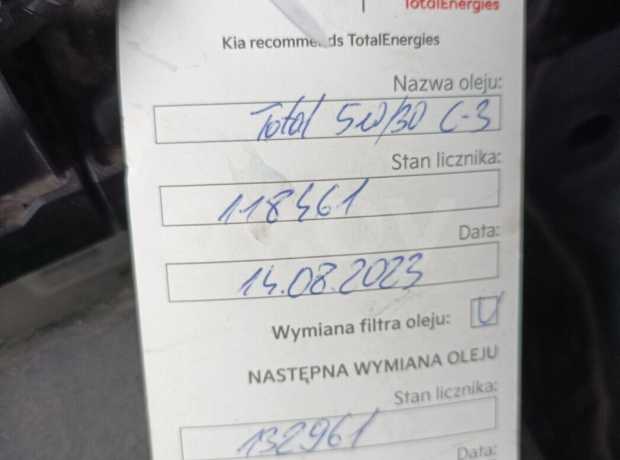 TotalEnergies
Kia recommends TotalEnergies
Nazwa oleju:
Total 5W/30 C-3
Stan licznika:
118461
Data:
14.08.2023
Wymiana filtra oleju:
NASTĘPNA WYMIANA OLEJU
Stan licznika:
132961
Data: